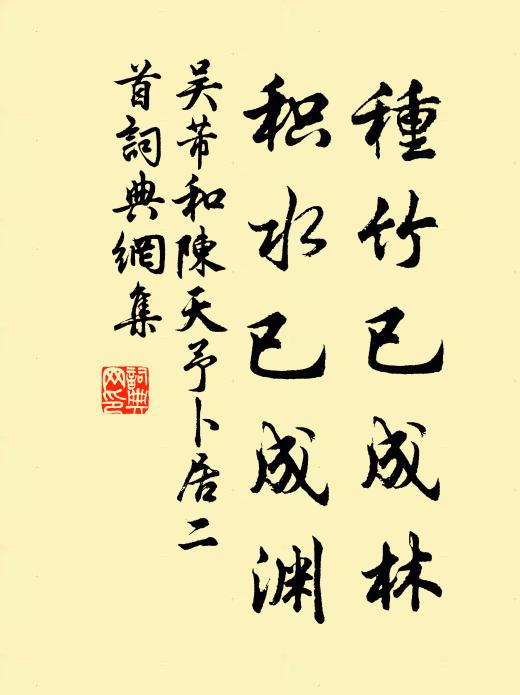 種竹已成林
积水已成渊
吴芾和陳天予卜居二
首詞典網集
詞典
网印